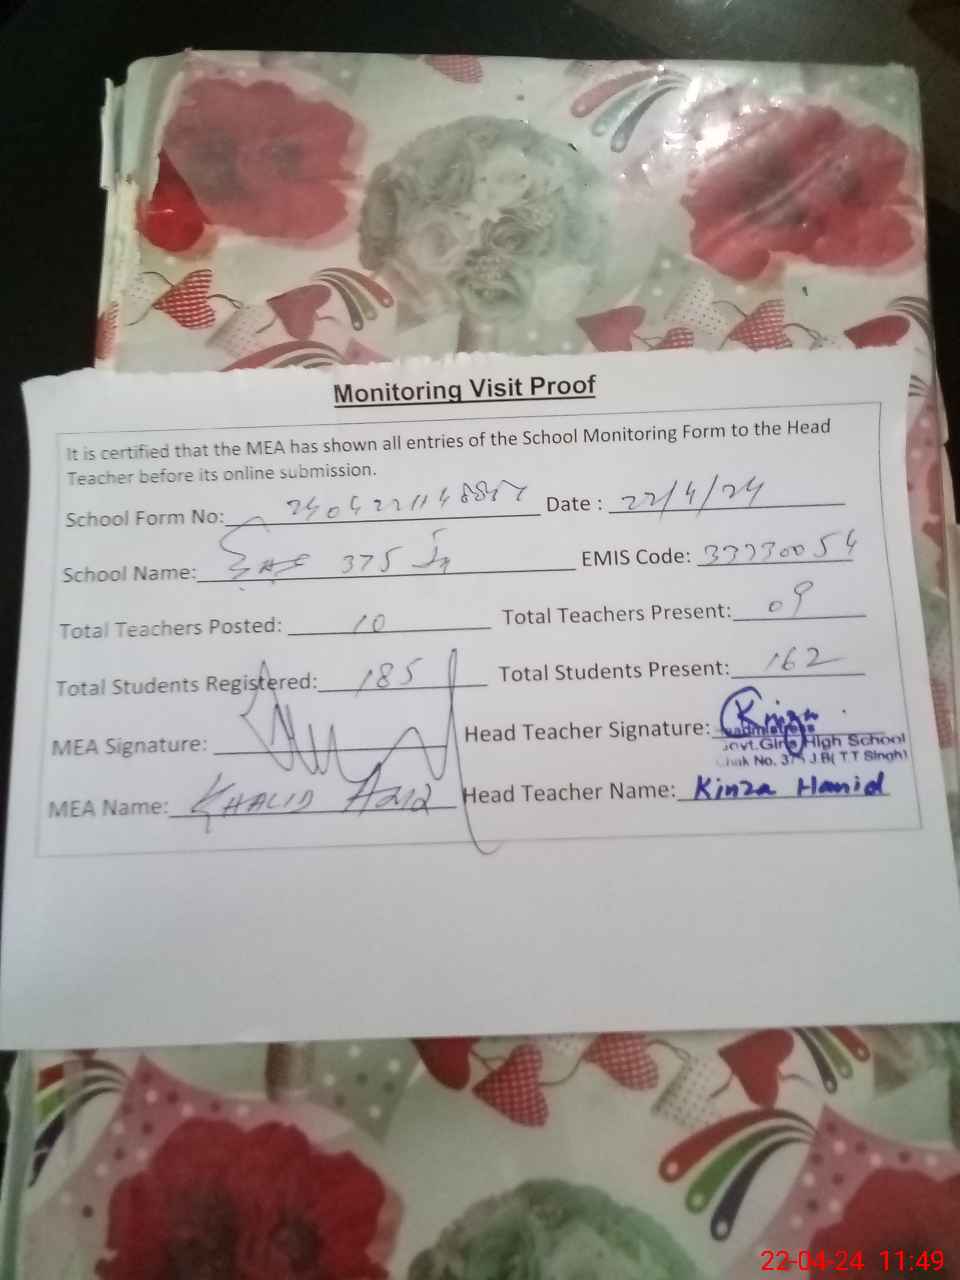 Monitoring Visit Proof
It is certified that the MEA has shown all entries of the School Monitoring Form to the Head
Teacher before its online submission.
School Form No: Date : 22/4/24
School Name: 375 EMIS Code: 33330054
Total Teachers Posted: 10 Total Teachers Present: 09
Total Students Registered: 185 Total Students Present: 162
MEA Signature: Head Teacher Signature: Kinza
Headmistress
Govt.Girls High School
Chak No. 375 J.B( T.T Singh)
MEA Name: KHALID Head Teacher Name: Kinza Hamid
22-04-24 11:49